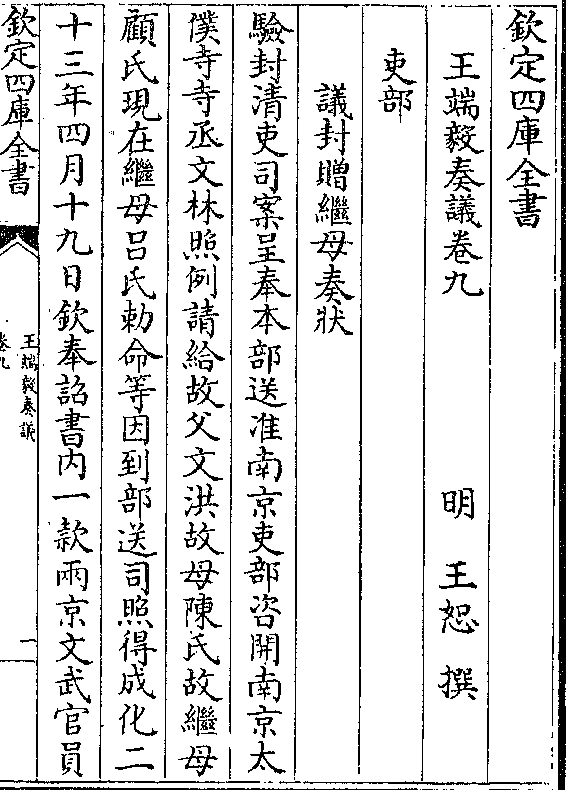 欽定四庫全書
王端毅奏議卷九
明 王恕 撰
吏部
議封贈繼母奏狀
驗封清吏司案呈奉本部送准南京吏部咨開南京太
僕寺寺丞文林照例請給故父文洪故母陳氏故繼母
顧氏現在繼母呂氏勅命等因到部送司照得成化二
十三年四月十九日欽奉詔書内一款兩京文武官員
欽定四庫全書
王端毅奏議
卷九
一